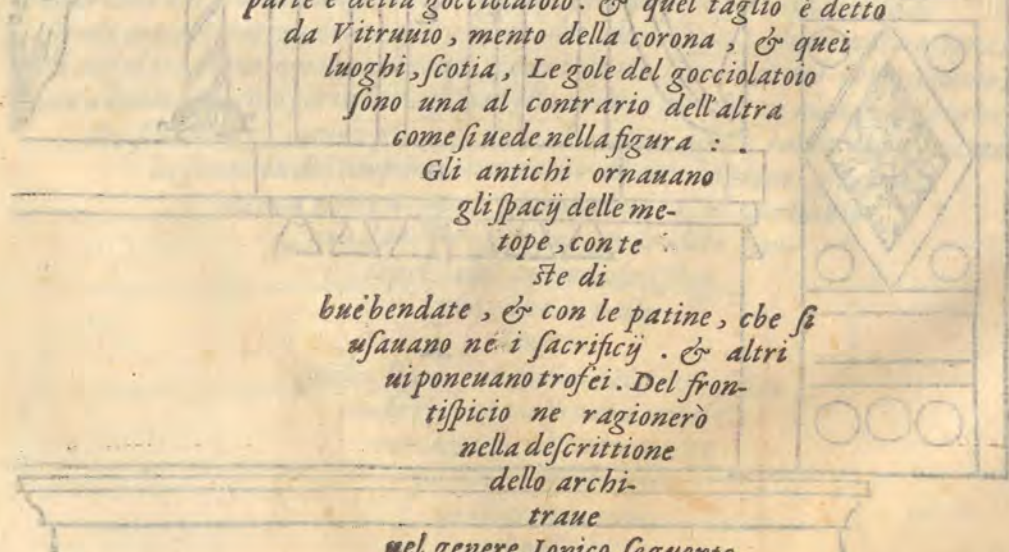 parte è detta gocciolatoio. & quel taglio è detto
da Vitruuio, mento della corona, & quei
luoghi, ſcotia, Le gole del gocciolatoio
ſono una al contrario dell'altra
come ſi uede nella figura : .
Gli antichi ornauano
gli ſpacij delle me-
tope, con te
ſte di
bue bendate, & con le patine, che ſi
uſauano ne i ſacrificij . & altri
ui poneuano trofei. Del fron-
tiſpicio ne ragionerò
nella deſcrittione
dello archi-
traue
nel genere Ionico ſeguente